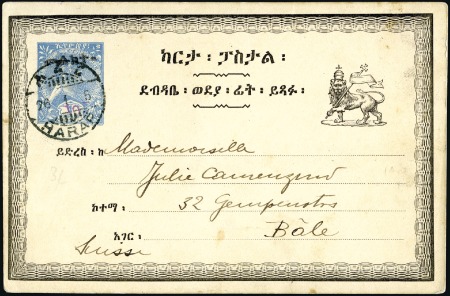 ካርታ ፡ ፖስታል ፡
ደብዳቤ ፡ ወደያ ፡ ፊት ፡ ይጻፉ ፡
HARAR
ይድረስ ፡ ለ Mademoiselle
Julie Camenzind
ከተማ ፡ 32
አገር ፡ Bâle
Suisse